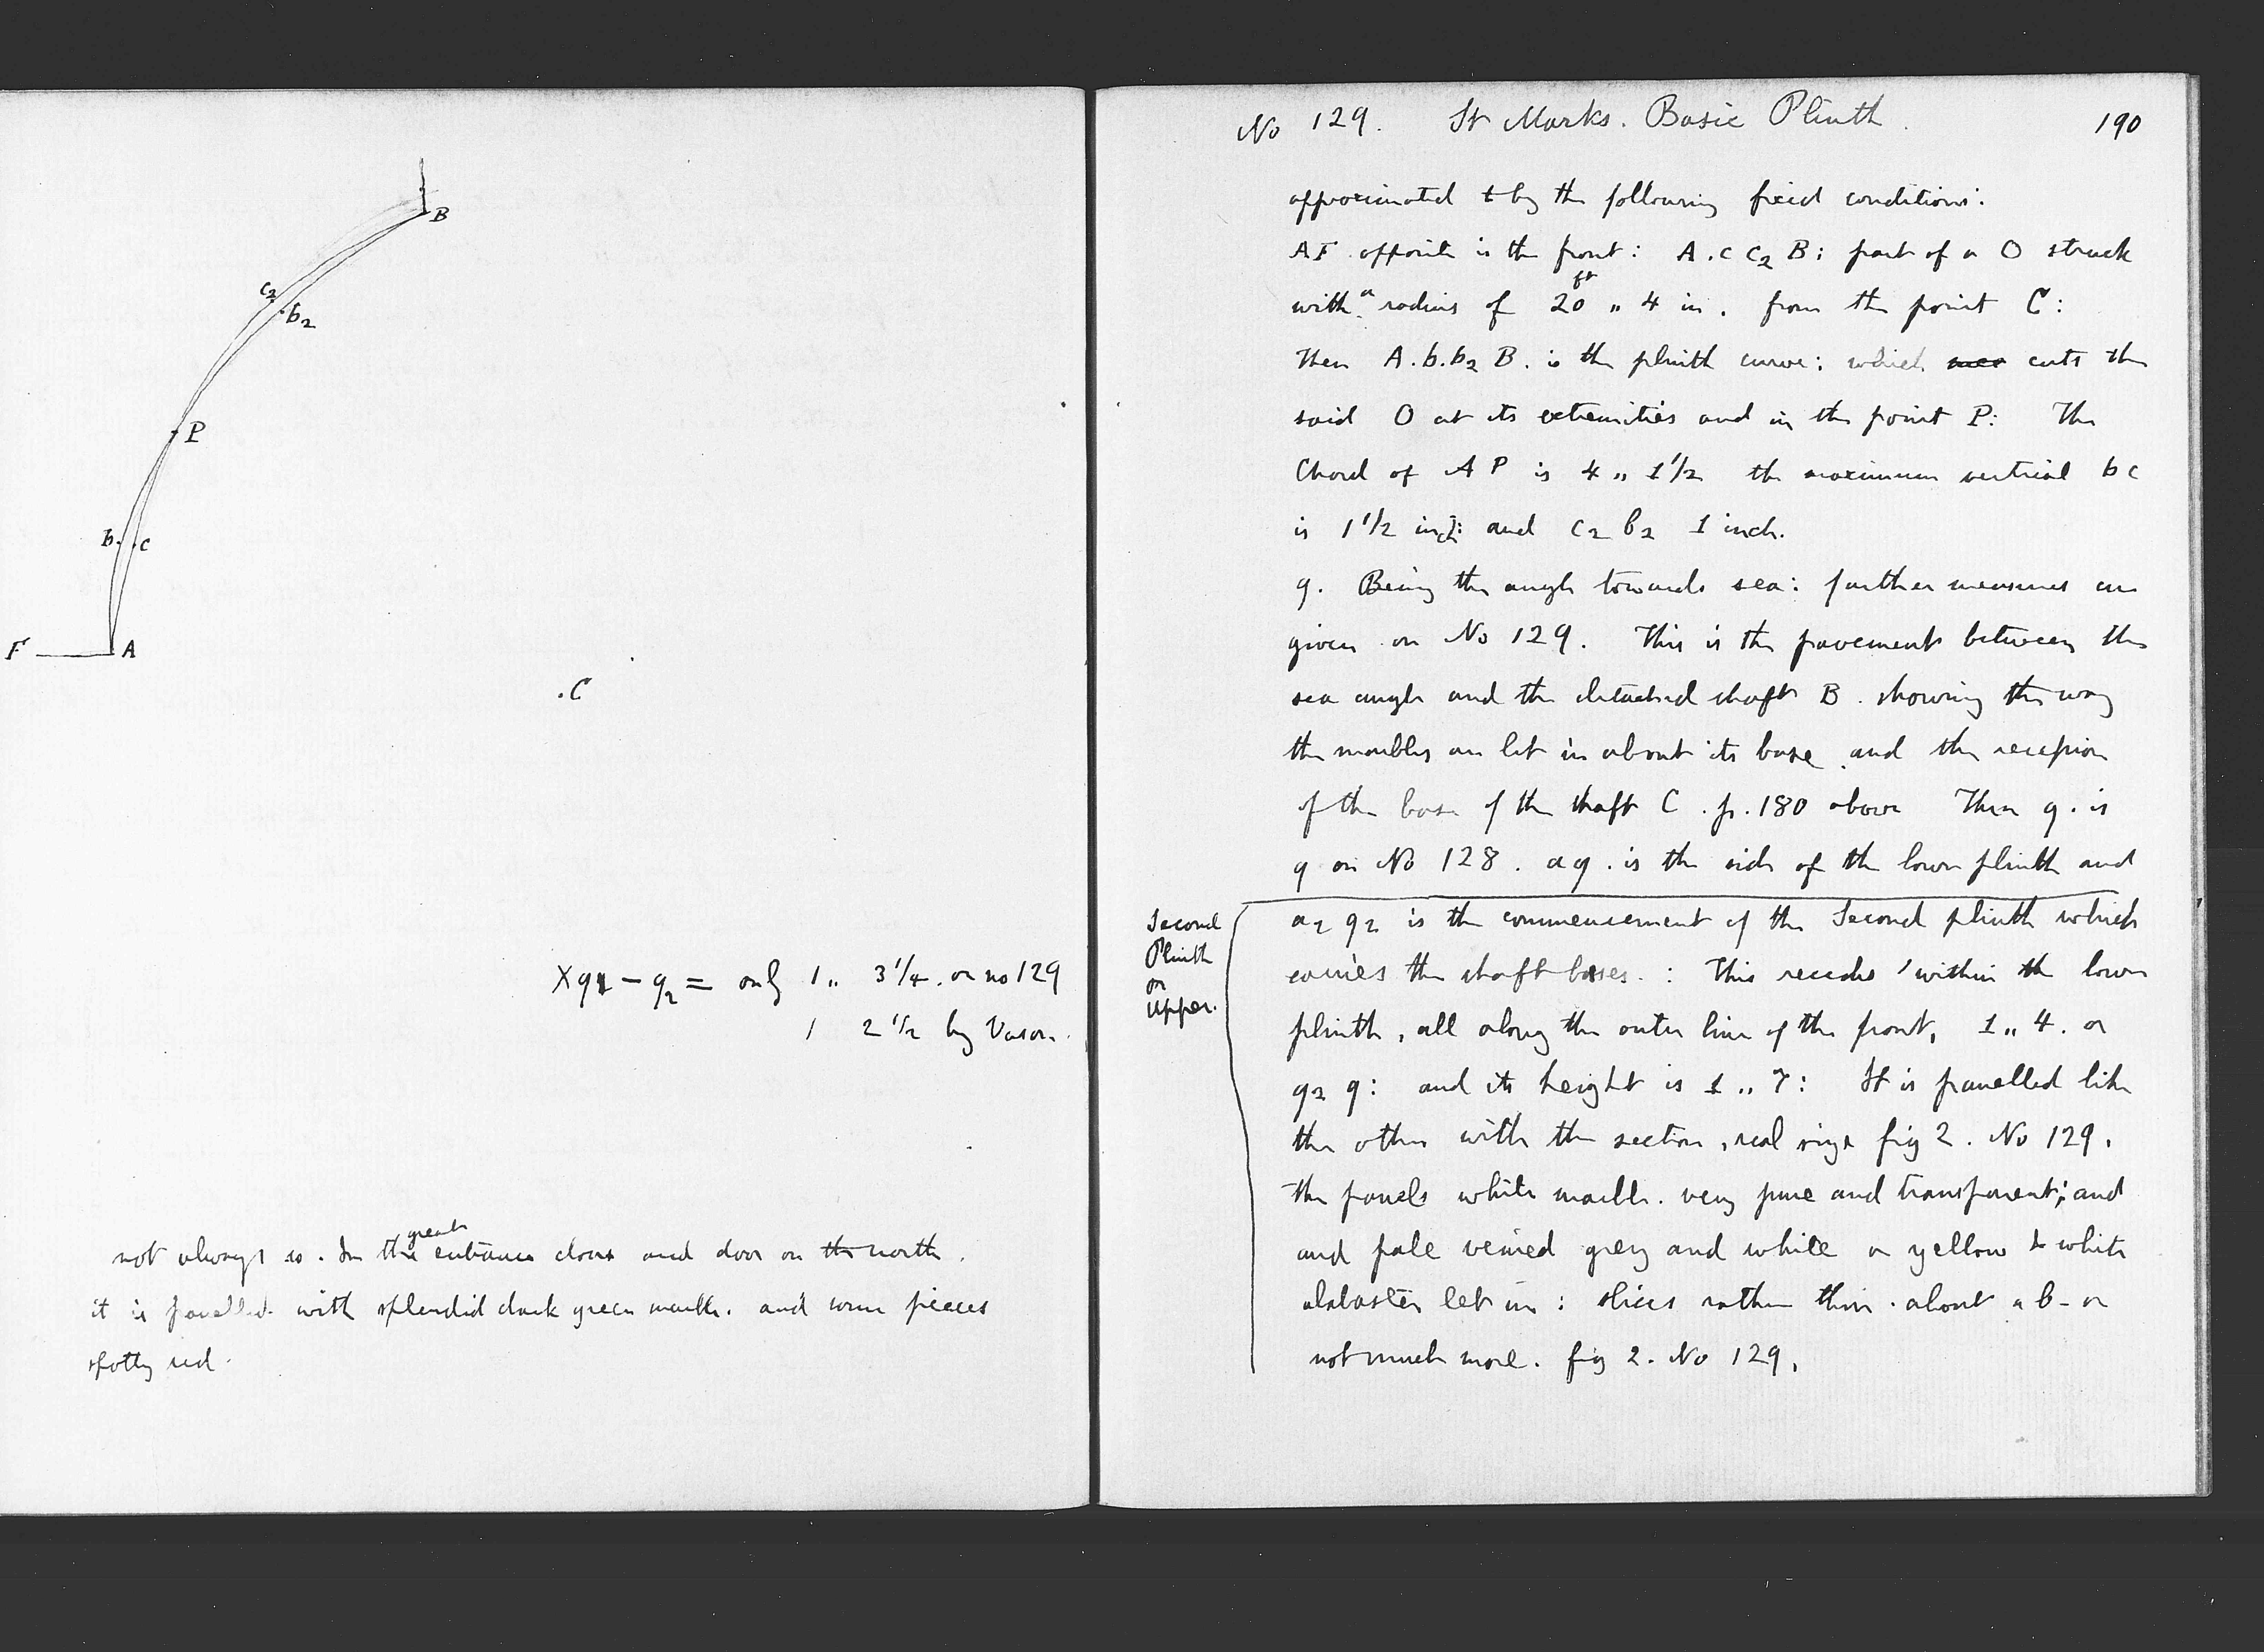 B
c2
b2
P
b. .c
F A
.C
X q1 - q2 = only 1 ,, 3 1/4. on no 129
1 2 1/2 by Vason.
great
not always so. In the entrance doors and door on the north.
it is panelled with splendid dark green marble. and some pieces
spotty red.
No 129. St Marks. Basic Plinth. 190
approximated by the following fixed conditions:
AF opposite is the front: A.c c2 B: part of a O struck
with a radius of 20 ft ,, 4 in. from the point C:
Then A.b.b2 B. is the plinth curve: which cuts the
said O at its extremities and in the point P: The
Chord of A P is 4 ,, 1 1/2 the maximum vertical b c
is 1 1/2 inch: and c2 b2 1 inch.
q. Being the angle towards sea: further measures are
given on No 129. This is the pavement between the
sea angle and the detached shaft B. showing the way
the marbles are let in about its base and the reception
of the base of the shaft C. p. 180 above Then q. is
q on No 128. a q. is the side of the lower plinth and
Second
Plinth
or
upper.
a2 q2 is the commencement of the Second plinth which
carries the shaft bases.: This recedes within the lower
plinth, all along the outer line of the front, 1 ,, 4. or
q2 q: and its height is 1 ,, 7: It is panelled like
the other with the section, real size fig 2. No 129.
the panels white marble. very pure and transparent; and
and pale veined grey and white or yellow & white
alabaster let in: slices rather thin. about a b - or
not much more. fig 2. No 129.